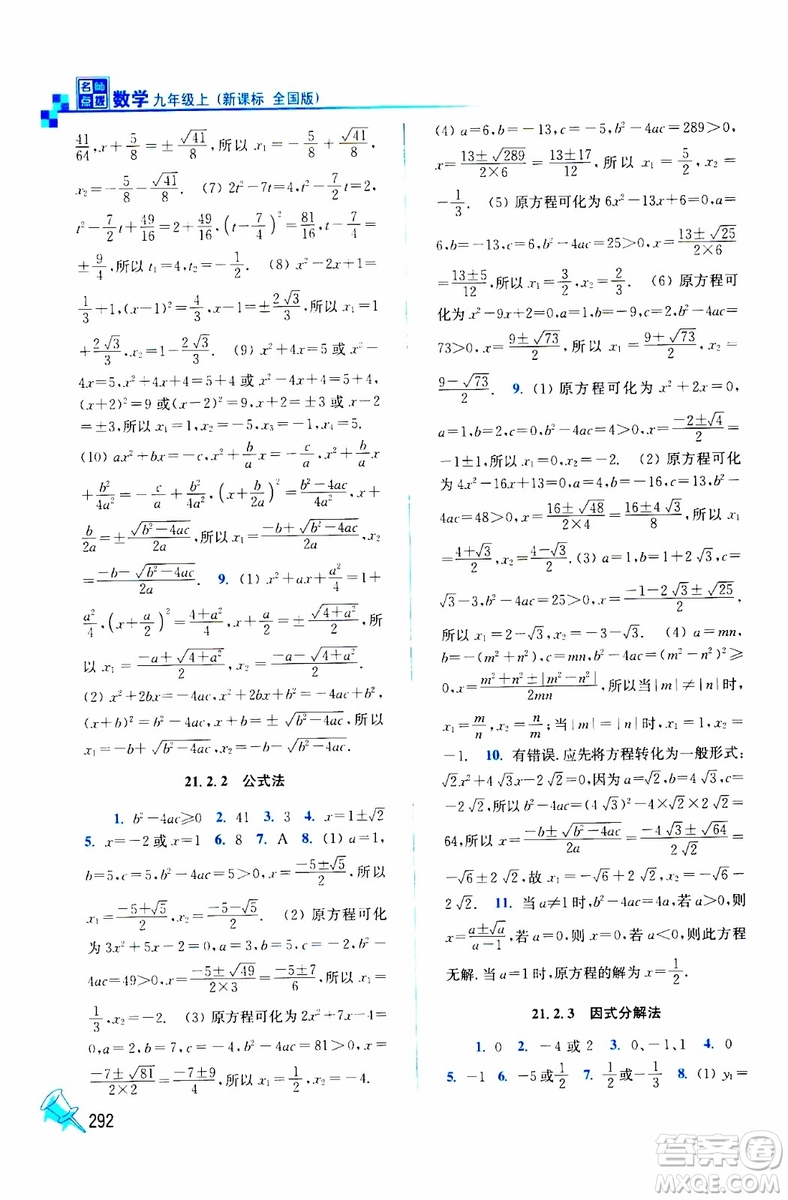 名师点拨 数学 九年级上（新课标 全国版）
41/64, x+5/8=±√41/8, 所以 x₁=5/8+√41/8,
x₂=-5/8-√41/8. (7) 2t²-7t=4, t²-7/2t=2,
t²-7/2t+49/16=2+49/16, (t-7/4)²=81/16, t-7/4=
±9/4, 所以 t₁=4, t₂=-1/2. (8) x²-2x+1=
1/3+1, (x-1)²=4/3, x-1=±2√3/3, 所以 x₁=1
+2√3/3, x₂=1-2√3/3. (9) x²+4x=5 或 x²-
4x=5, x²+4x+4=5+4 或 x²-4x+4=5+4,
(x+2)²=9 或 (x-2)²=9, x+2=±3 或 x-2
=±3, 所以 x₁=1, x₂=-5, x₃=-1, x₄=5.
(10) ax²+bx=-c, x²+b/a x=-c/a, x²+b/a x
+b²/4a²=-c/a+b²/4a², (x+b/2a)²=b²-4ac/4a², x+
b/2a=±√b²-4ac/2a, 所以 x₁=-b+√b²-4ac/2a, x₂=
-b-√b²-4ac/2a. 9. (1) x²+ax+a²/4=1+
a²/4, (x+a/2)²=4+a²/4, x+a/2=±√4+a²/2, 所
以 x₁=-a+√4+a²/2, x₂=-a-√4+a²/2.
(2) x²+2bx=-4ac, x²+2bx+b²=b²-4ac,
(x+b)²=b²-4ac, x+b=±√b²-4ac, 所以
x₁=-b+√b²-4ac, x₂=-b-√b²-4ac.
21.2.2 公式法
1. b²-4ac≥0 2. 41 3. 3 4. x=1±√2
5. x=-2 或 x=1 6. 8 7. A 8. (1) a=1,
b=5, c=5, b²-4ac=5>0, x=-5±√5/2, 所以
x₁=-5+√5/2, x₂=-5-√5/2. (2) 原方程可化
为 3x²+5x-2=0, a=3, b=5, c=-2, b²-
4ac=49>0, x=-5±√49/2×3=-5±7/6, 所以 x₁=
1/3, x₂=-2. (3) 原方程可化为 2x²+7x-4=
0, a=2, b=7, c=-4, b²-4ac=81>0, x=
-7±√81/2×2=-7±9/4, 所以 x₁=1/2, x₂=-4.
292
(4) a=6, b=-13, c=-5, b²-4ac=289>0,
x=13±√289/2×6=13±17/12, 所以 x₁=5/2, x₂=
-1/3. (5) 原方程可化为 6x²-13x+6=0, a=
6, b=-13, c=6, b²-4ac=25>0, x=13±√25/2×6
=13±5/12, 所以 x₁=3/2, x₂=2/3. (6) 原方程可
化为 x²-9x+2=0, a=1, b=-9, c=2, b²-4ac=
73>0, x=9±√73/2, 所以 x₁=9+√73/2, x₂=
9-√73/2. 9. (1) 原方程可化为 x²+2x=0,
a=1, b=2, c=0, b²-4ac=4>0, x=-2±√4/2=
-1±1, 所以 x₁=0, x₂=-2. (2) 原方程可化
为 4x²-16x+13=0, a=4, b=-16, c=13, b²-
4ac=48>0, x=16±√48/2×4=16±4√3/8, 所以 x₁=
4+√3/2, x₂=4-√3/2. (3) a=1, b=1+2√3, c=
√3-3, b²-4ac=25>0, x=-1-2√3±√25/2,
所以 x₁=2-√3, x₂=-3-√3. (4) a=mn,
b=-(m²+n²), c=mn, b²-4ac=(m²-n²)²≥
0, x=m²+n²±|m²-n²|/2mn, 所以当|m|≠|n|时,
x₁=m/n, x₂=n/m; 当|m|=|n|时, x₁=x₂=1 或
-1. 10. 有错误. 应先将方程转化为一般形式:
√2x²+4√3x-2√2=0, 因为 a=√2, b=4√3, c=
-2√2, 所以 b²-4ac=(4√3)²-4×√2×(-2√2)=
64, 所以 x=-b±√b²-4ac/2a=-4√3±√64/2√2=
-√6±2√2, 故 x₁=-√6+2√2, x₂=-√6-
2√2. 11. 当 a≠1 时, 若 a≥0, 则原方程的解为
x=a±√a/a-1, 若 a<0, 则此方程
无解. 当 a=1 时, 原方程的解为 x=1/2.
21.2.3 因式分解法
1. 0 2. -4 或 2 3. 0、-1、1 4. 0
5. -1 6. 2/3 7. 1/3 或 -1/3 8. (1) y₁=
答案圈
MXQE.COM